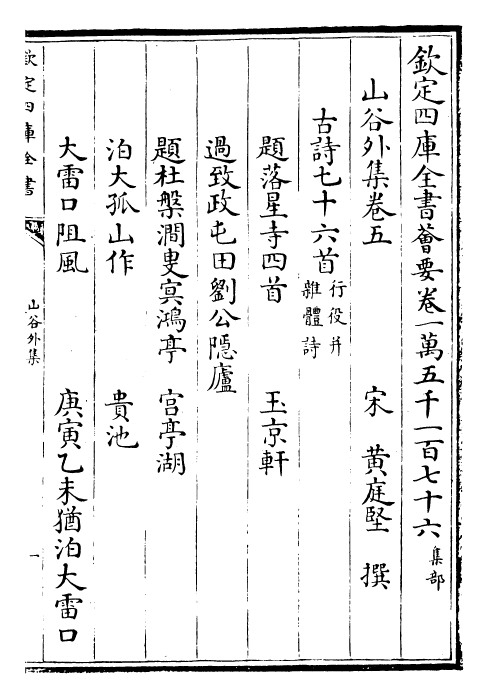 欽定四庫全書薈要卷一萬五千一百七十六 集部
山谷外集卷五 宋 黃庭堅 撰
古詩七十六首 行役并雜體詩
題落星寺四首 玉京軒
過致政屯田劉公隱廬
題杜槃澗叟㝠鴻亭 宫亭湖
泊大孤山作 貴池
大雷口阻風 庚寅乙未猶泊大雷口
欽定四庫全書
山谷外集
一